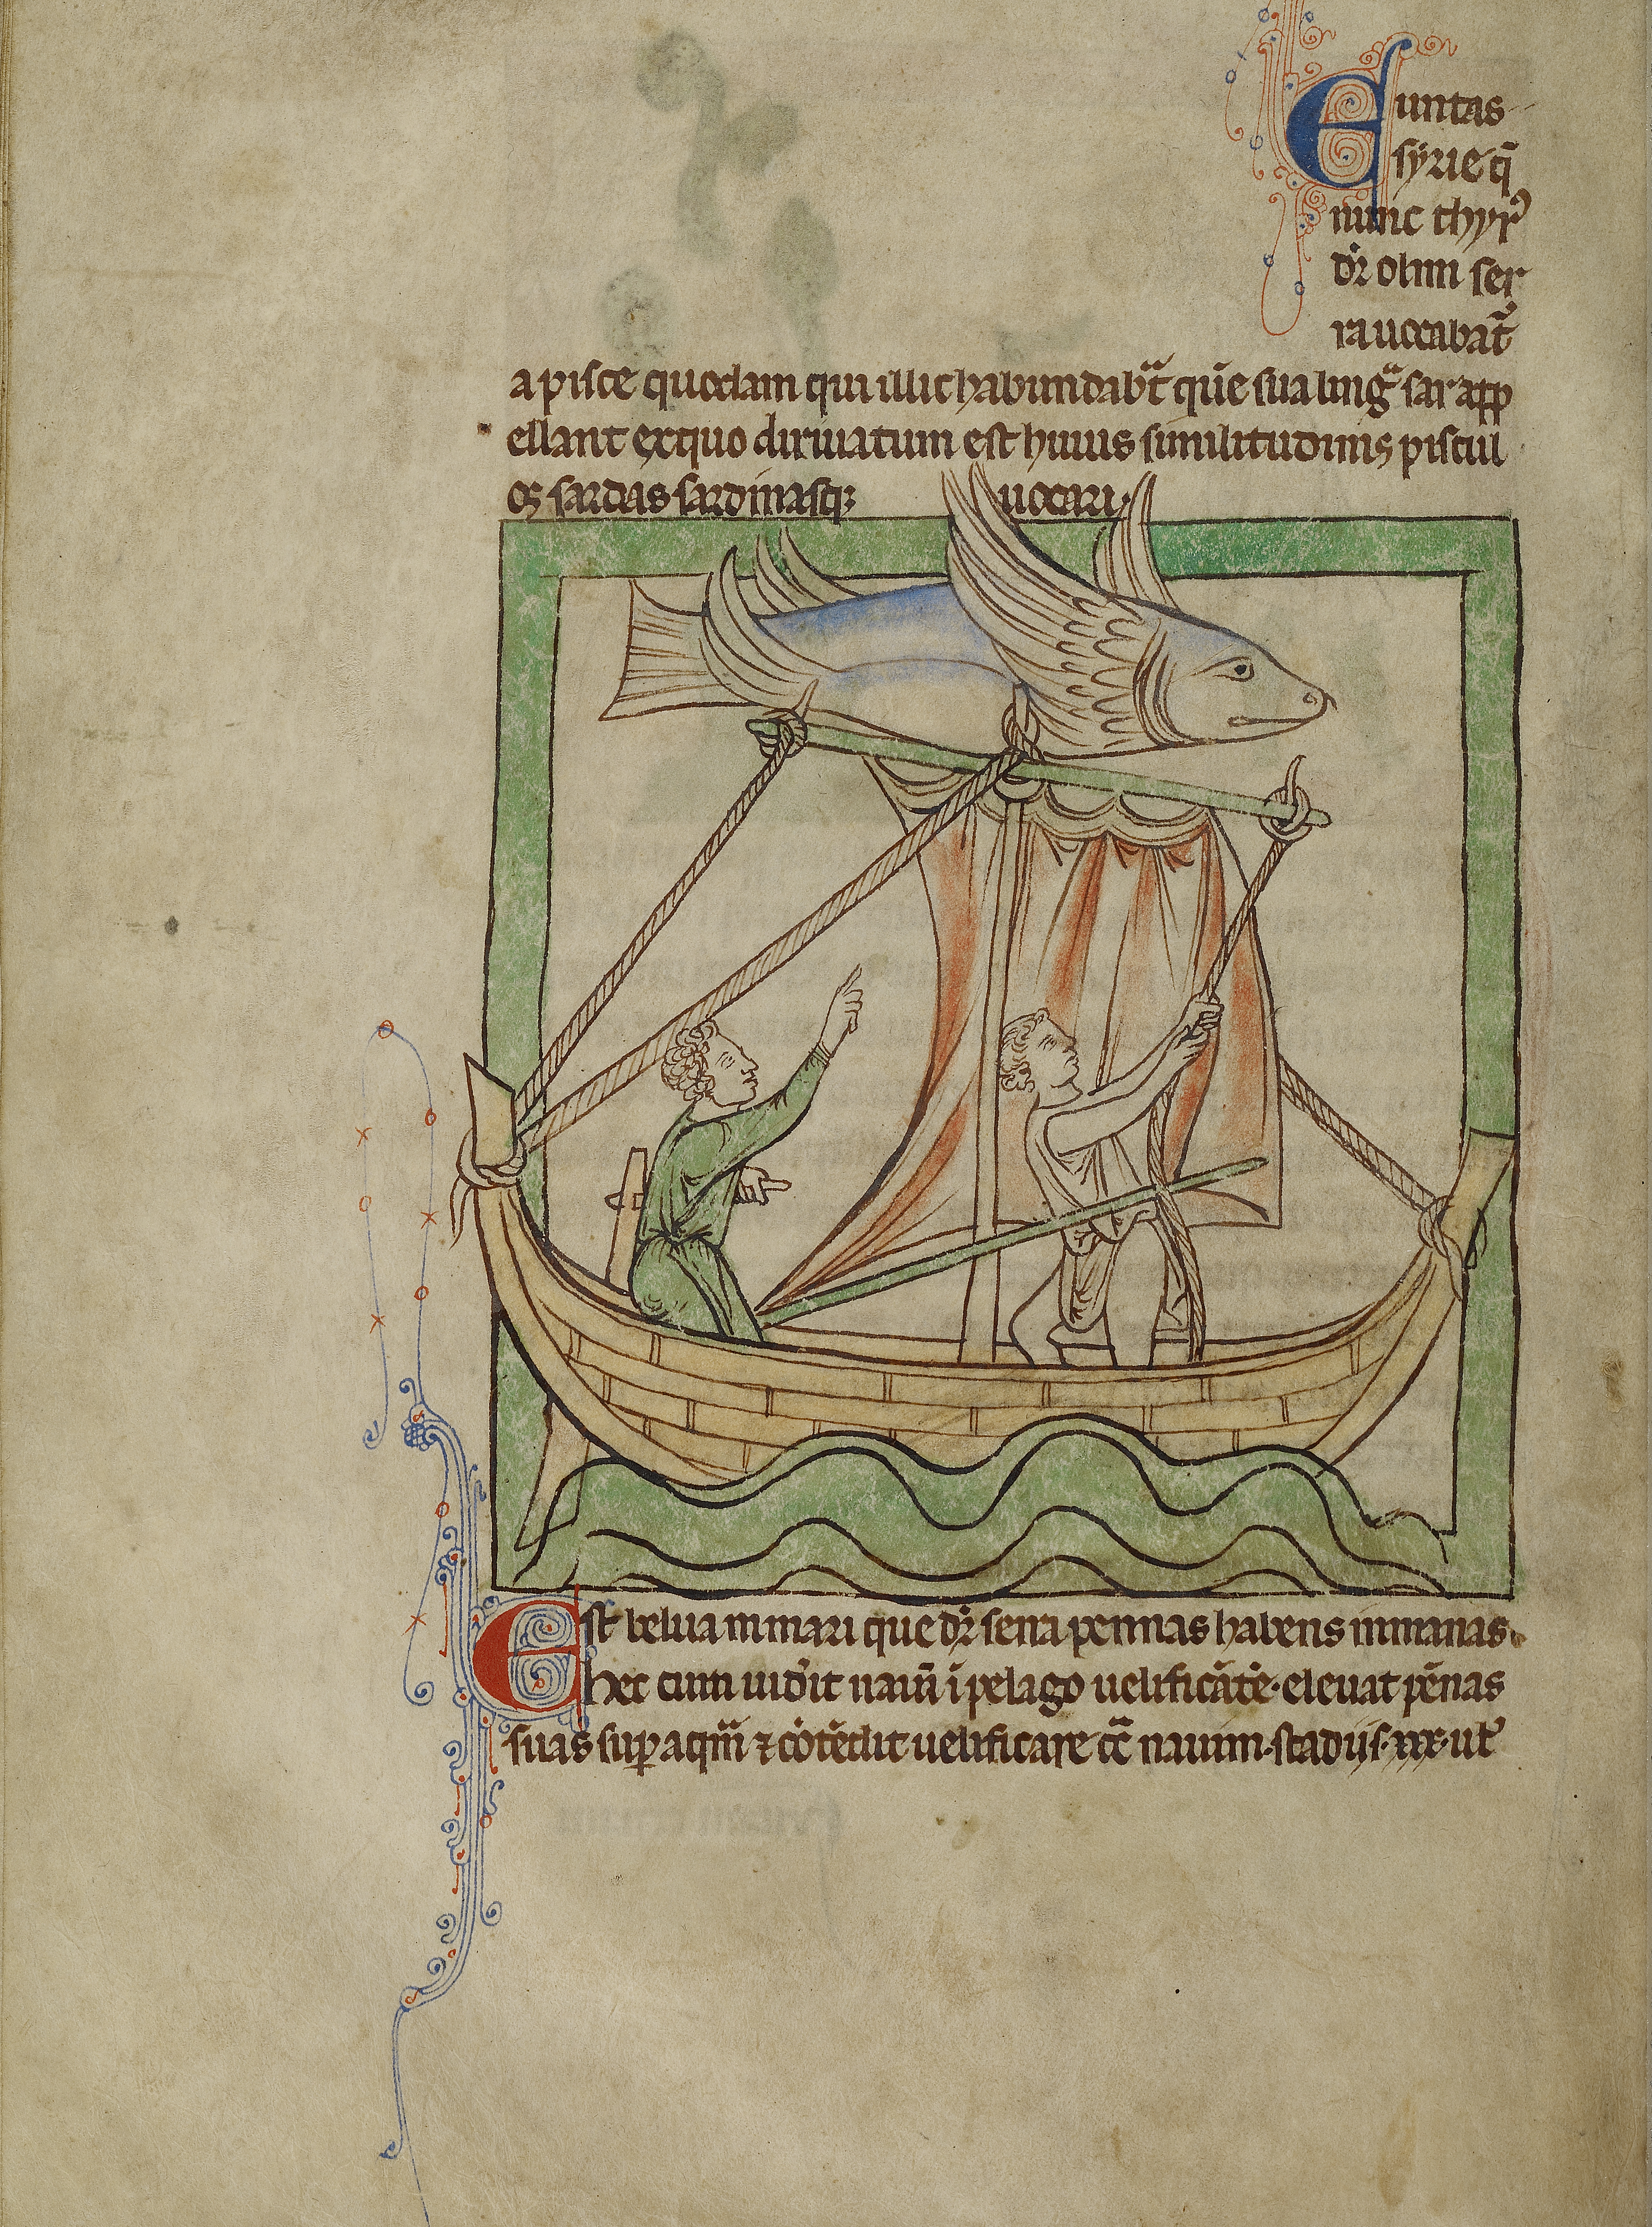 Euntas
syrie q̄
nunc thyr᷒
dr̄ olim ser
ra uocabat᷑
a pisce quodam qui illic habundabat᷑ quē sua lingᷓ sar app
ellant ex quo diriuatum est huius similitudinis piscul
os sardas sardinasq; uocari.
Est belua in mari que dr̄ serra pennas habens inmanas.
hec cum uid̾it nauī ī pelago uelificātē. eleuat pēnas
suas sup aquā ⁊ cōtēdit uelificare cͣ nauim. stadijs. xxx. ut᷑